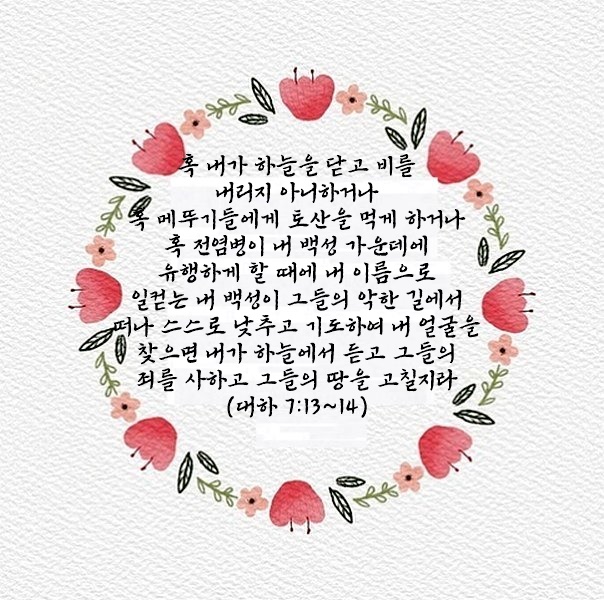 혹 내가 하늘을 닫고 비를
내리지 아니하거나
혹 메뚜기들에게 토산을 먹게 하거나
혹 전염병이 내 백성 가운데에
유행하게 할 때에 내 이름으로
일컫는 내 백성이 그들의 악한 길에서
떠나 스스로 낮추고 기도하여 내 얼굴을
찾으면 내가 하늘에서 듣고 그들의
죄를 사하고 그들의 땅을 고칠지라
(대하 7:13~14)